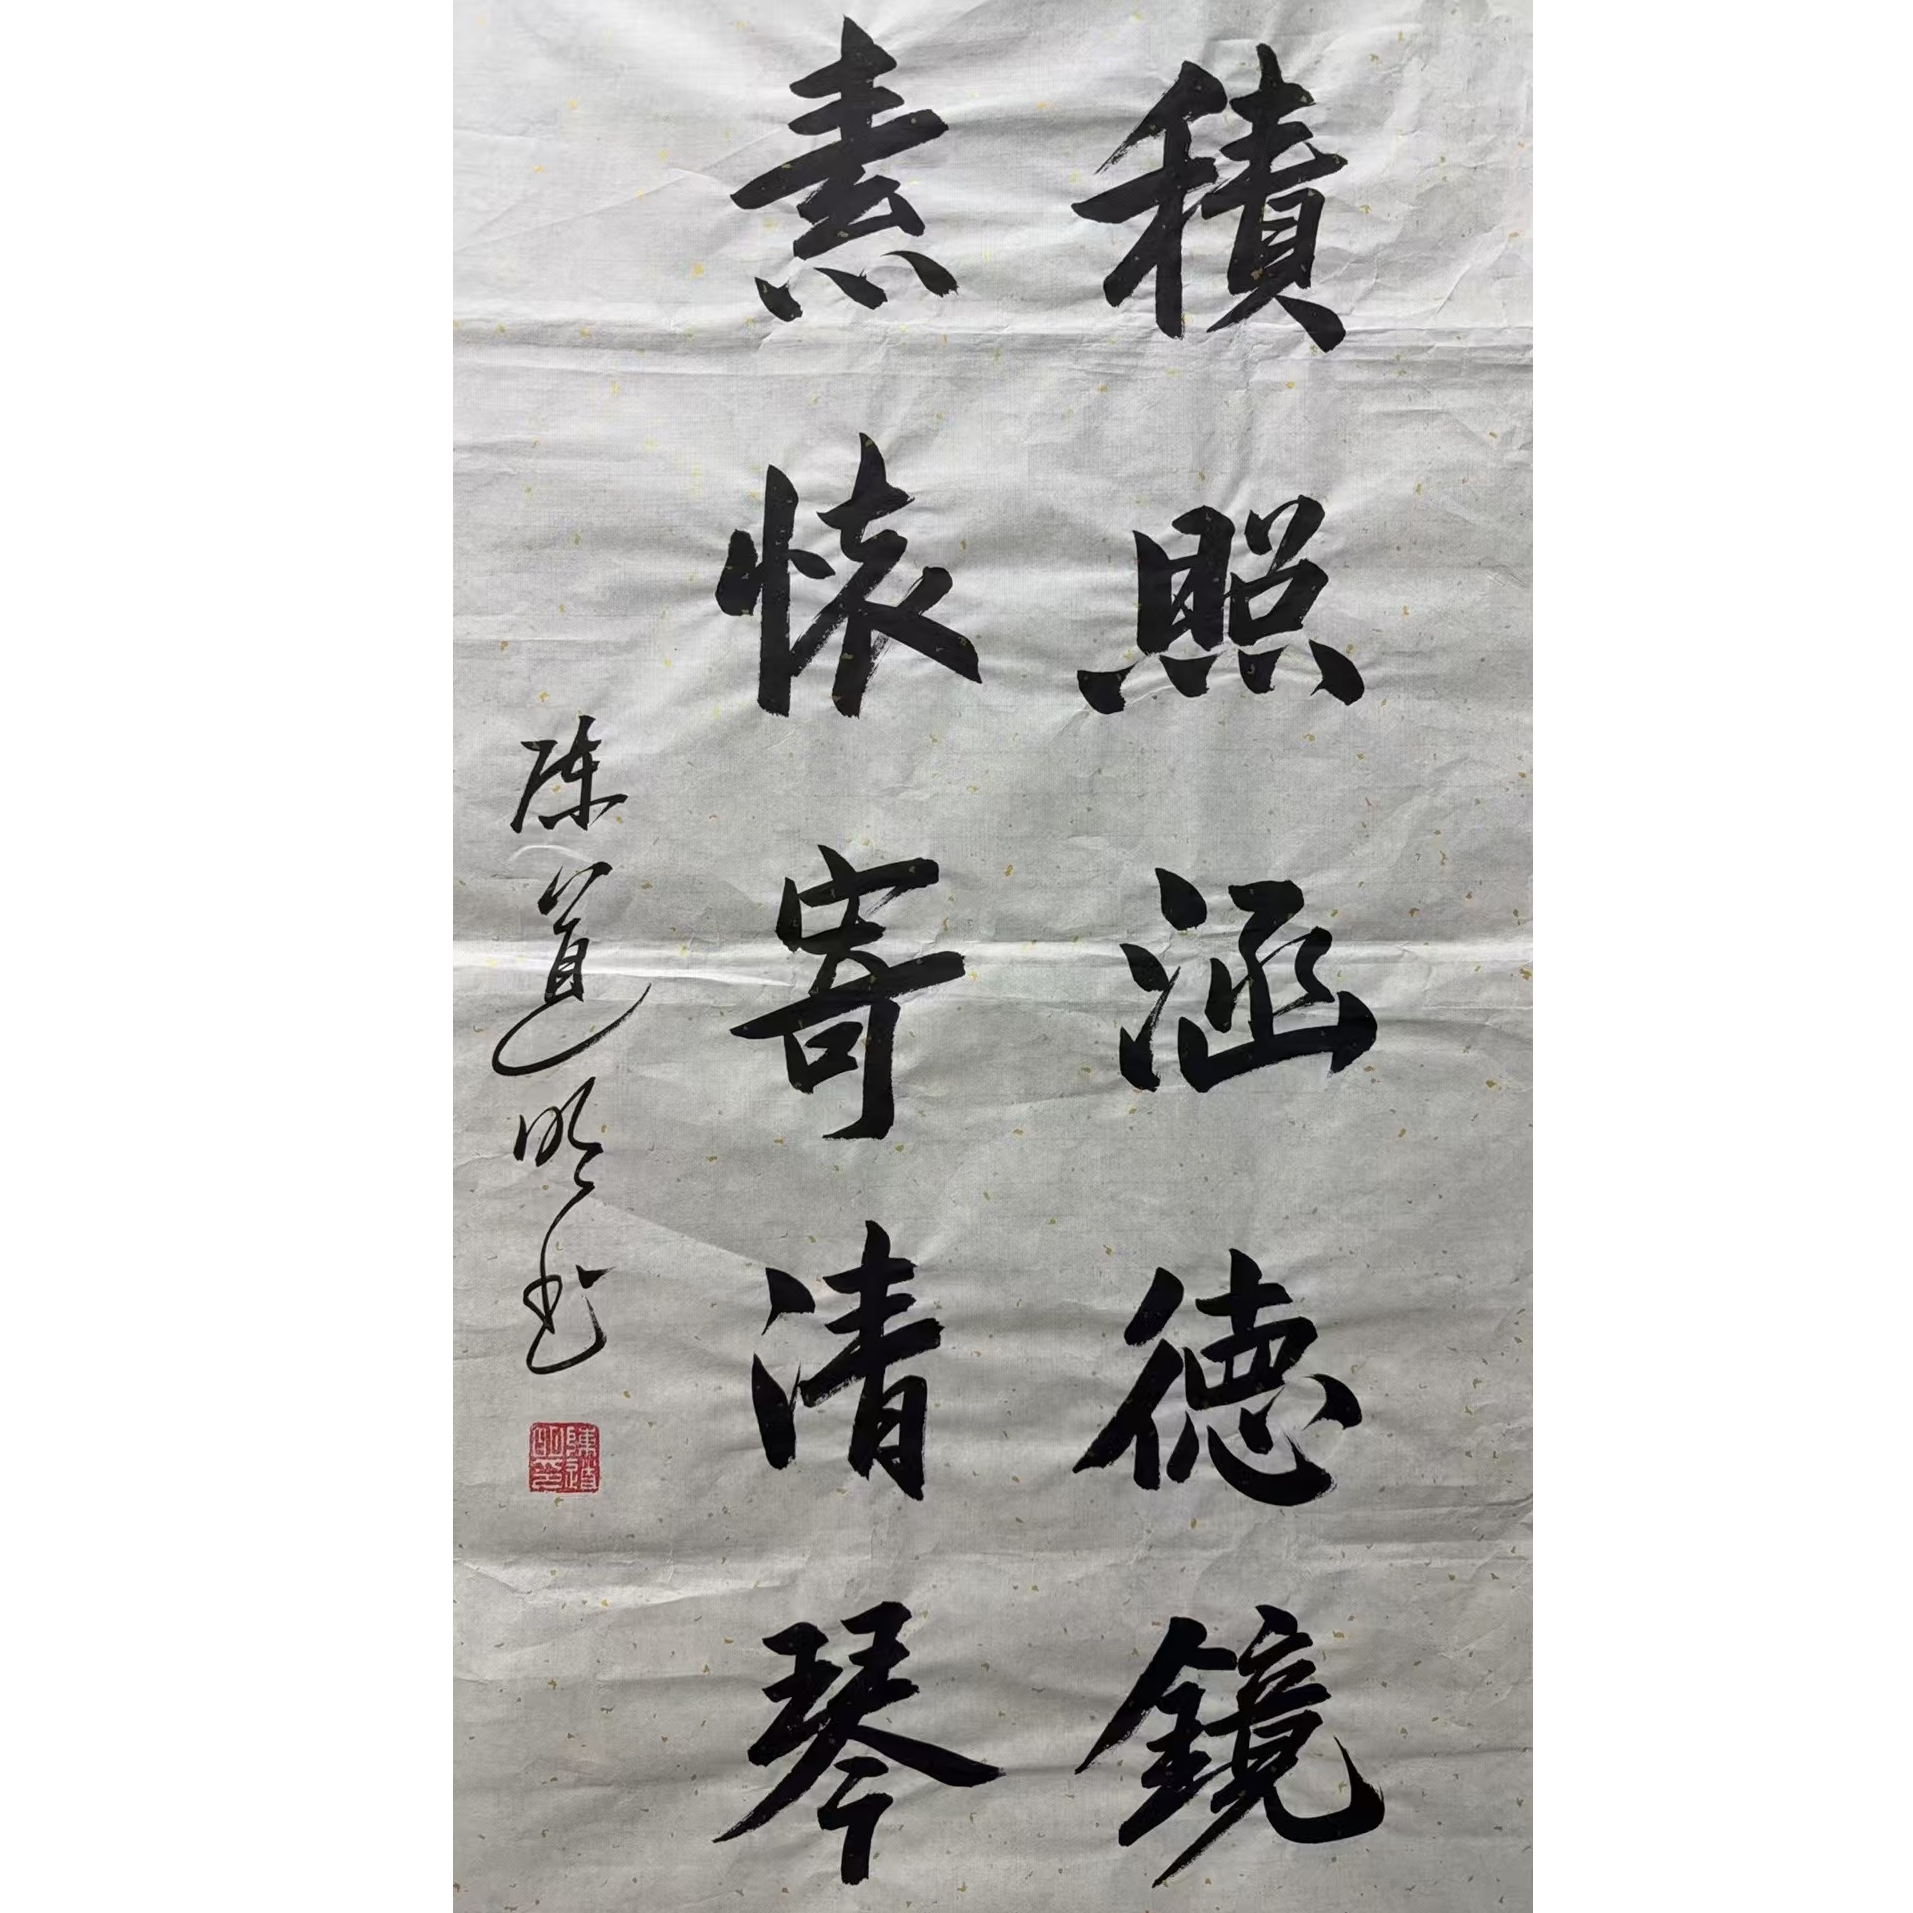 積照涵德鏡
素懷寄清琴
陈道明书
陳道明印